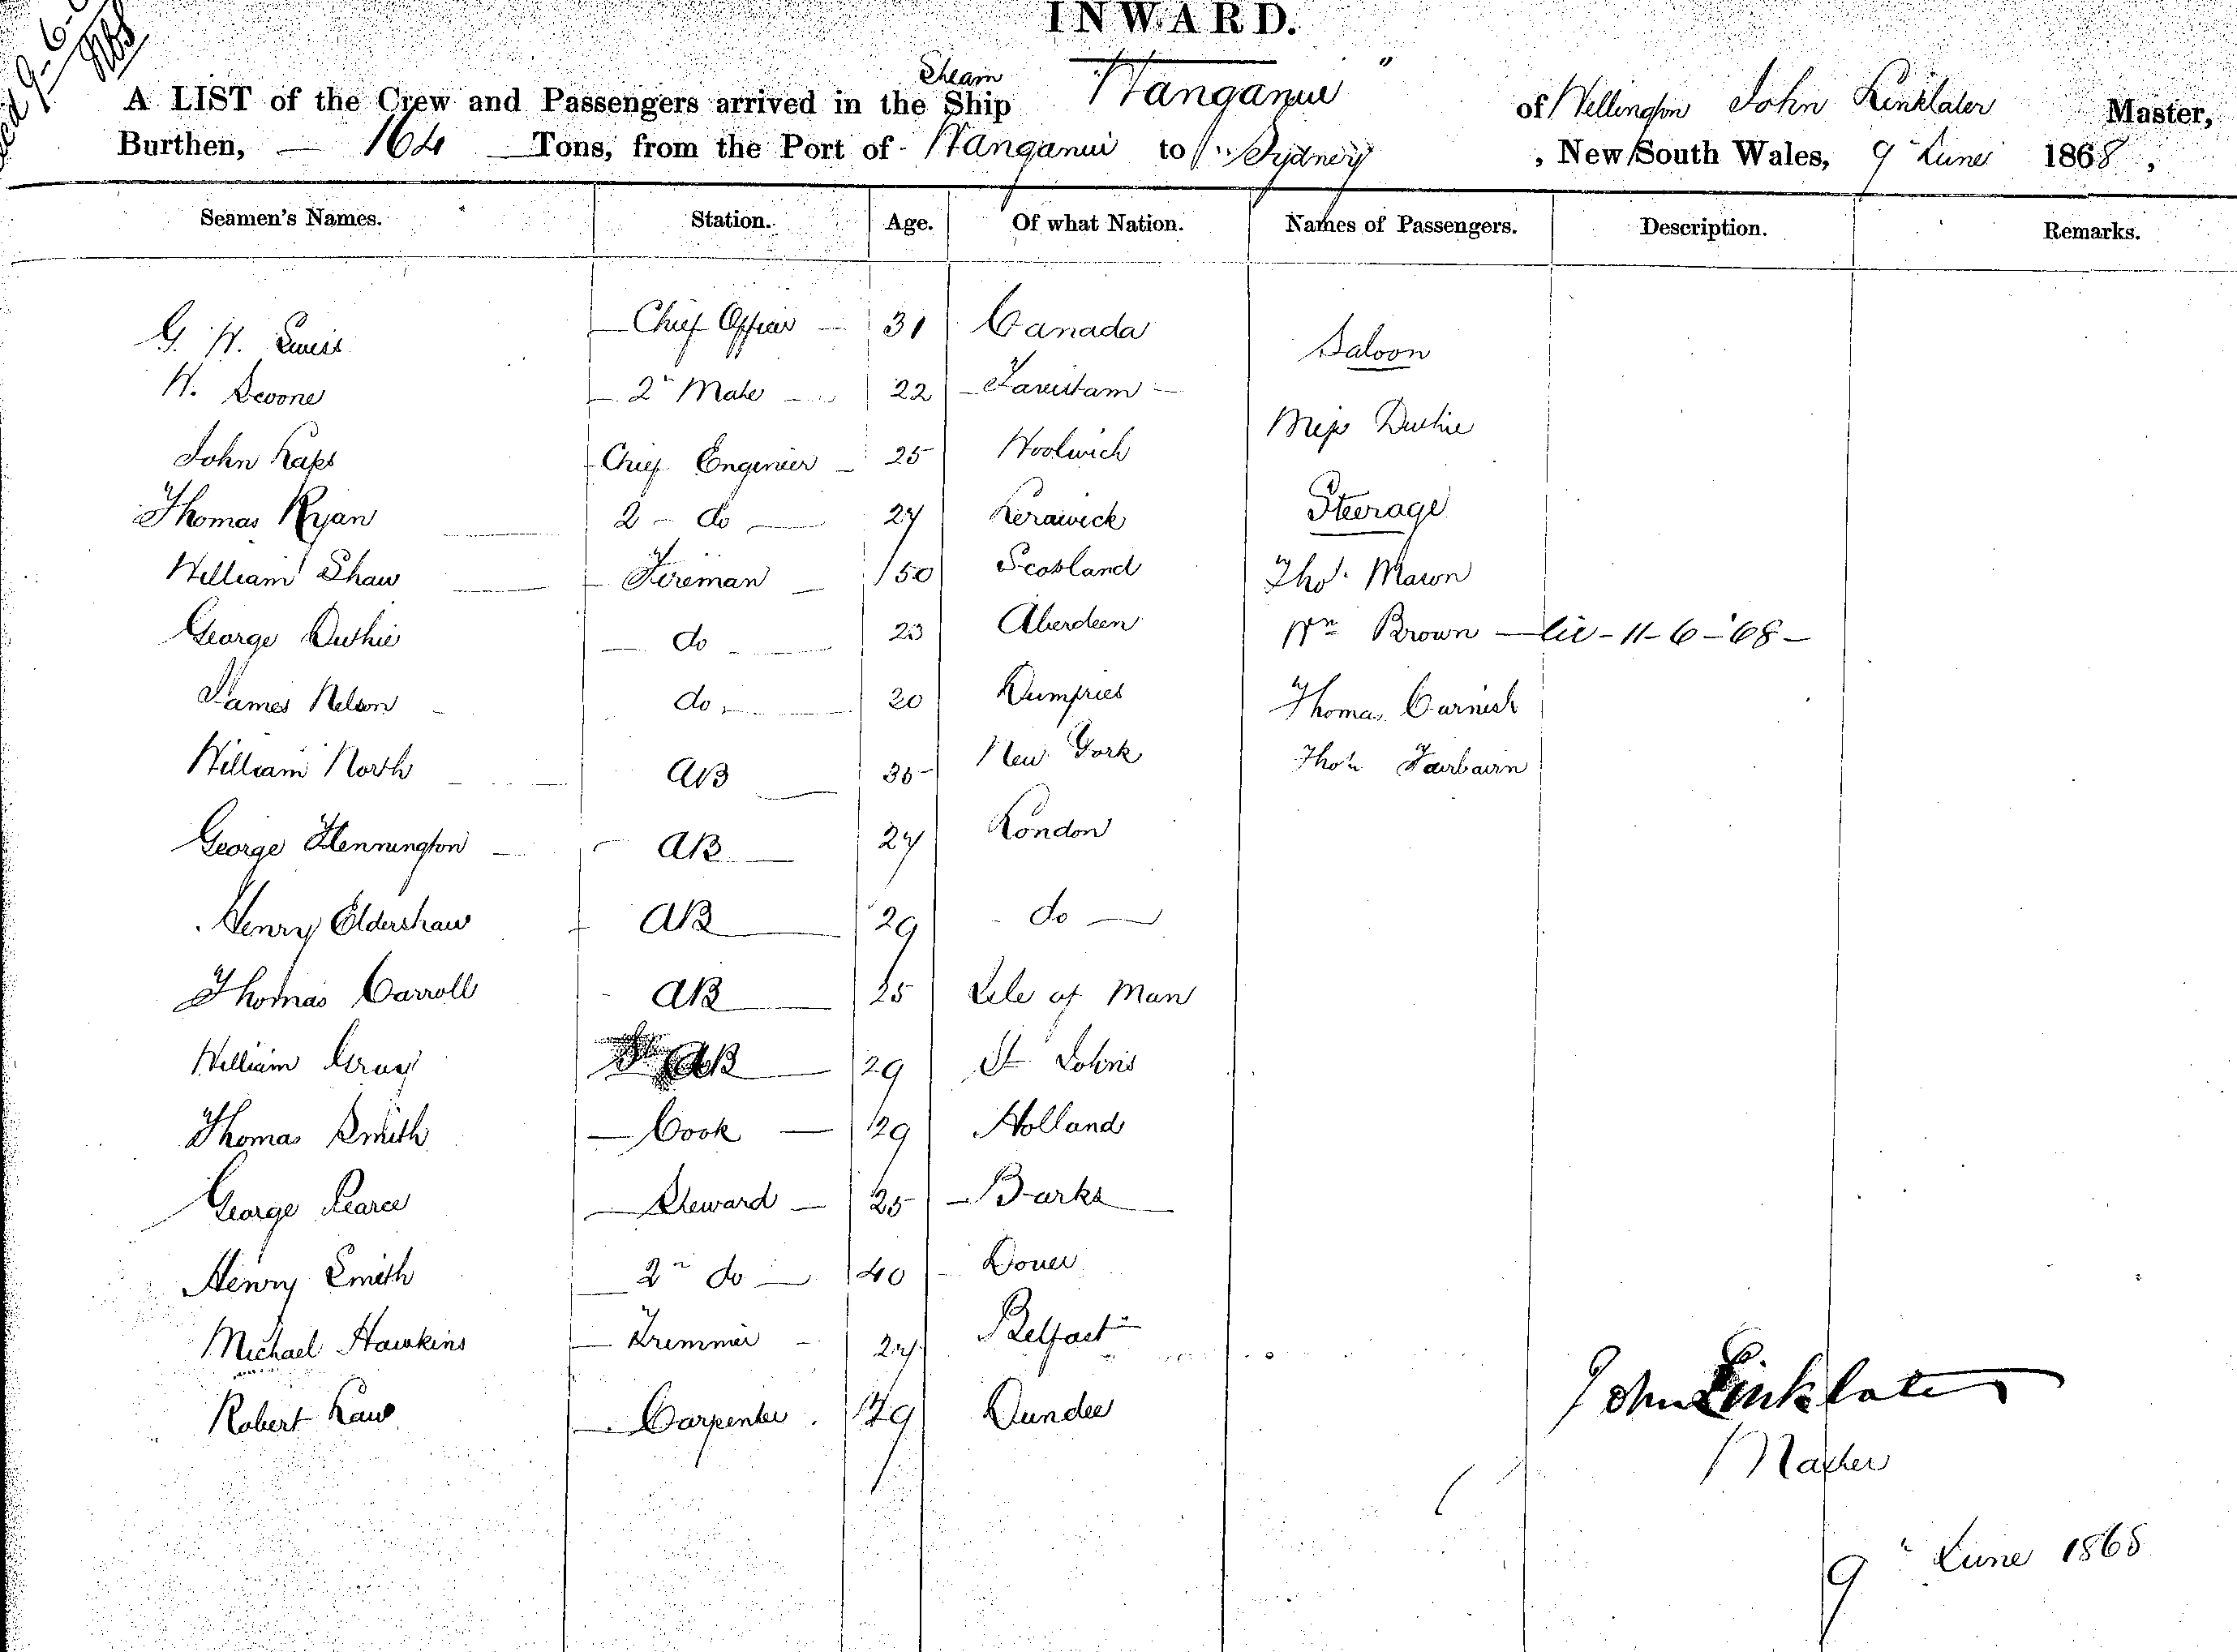 INWARD.
A LIST of the Crew and Passengers arrived in the Steam Ship "Wanganui" of Wellington John Linklater Master,
Burthen, 164 Tons, from the Port of Wanganui to Sydney, New South Wales, 9" June 1868,
Seamen's Names. Station. Age. Of what Nation. Names of Passengers. Description. Remarks.
G. W. Chief Officer 31 Canada
Saloon
W. Scoone 2" Mate 22
Miss Duthie
John Chief Engineer 25 Woolwich
Thomas Ryan 2 - do 27 Lerawick Steerage
William Shaw Fireman 50 Scotland Thos. Mawn
George Duthie do 23 Aberdeen Wm Brown - 11-6-'68-
James Nelson do 20 Dumfries Thomas Cornish
William North AB 35 New York Thos Fairbairn
George Hennington AB 27 London
Henry Eldershaw AB 29 do
Thomas Carroll AB 25 Isle of Man
William Gray AB 29 St Johns
Thomas Smith Cook 29 Holland
George Pearce Steward 25 Barks
Henry Smith 2" do 40 Dover
Michael Hawkins Trimmer 24 Belfast
Robert Law Carpenter 29 Dundee
John Linklater
Master
9" June 1868